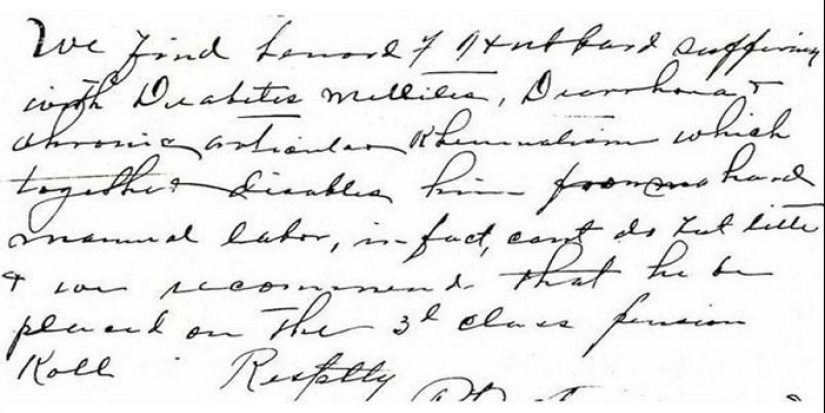 We find Leonard F Hubbard suffering
with Diabetes Mellites, Diarrhoea &
chronic articular Rheumatism which
together disables him from hard
manual labor, in fact, cant do but little
& we recommend that he be
placed on the 3d class pension
Roll Resptlly